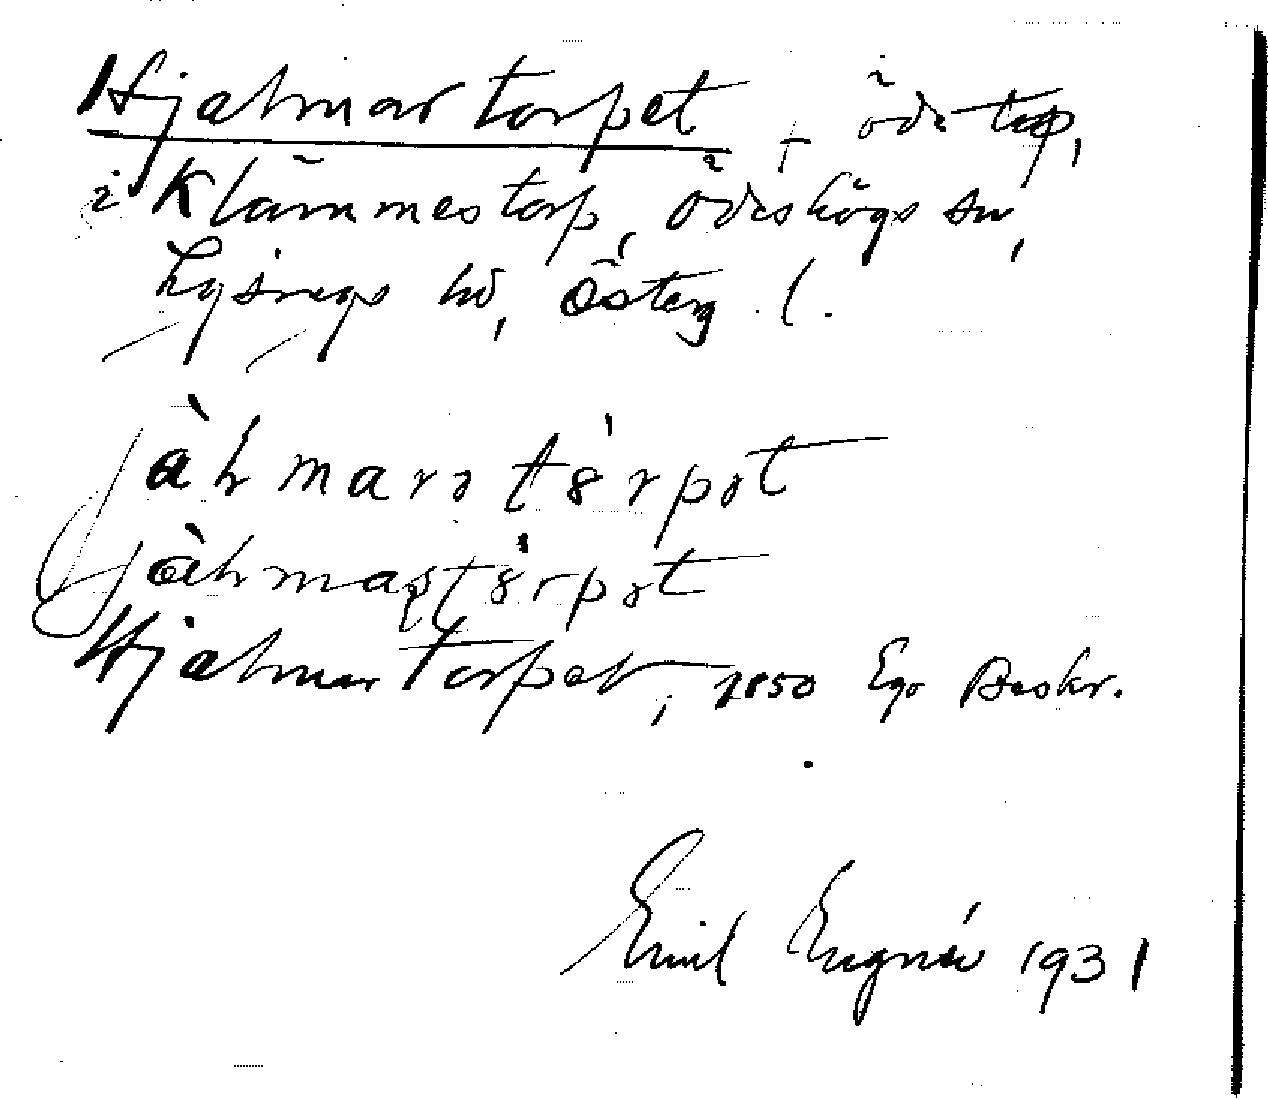 Hjalmartorpet, † öde torp,
i Klämmestorp, Ödeshögs sn,
Lysings hd, Österg. l.
jàhmarstórpət
jàhmaştórpət
Hjalmartorpet, 1850 Ego Beskr.
Emil Eugnér 1931